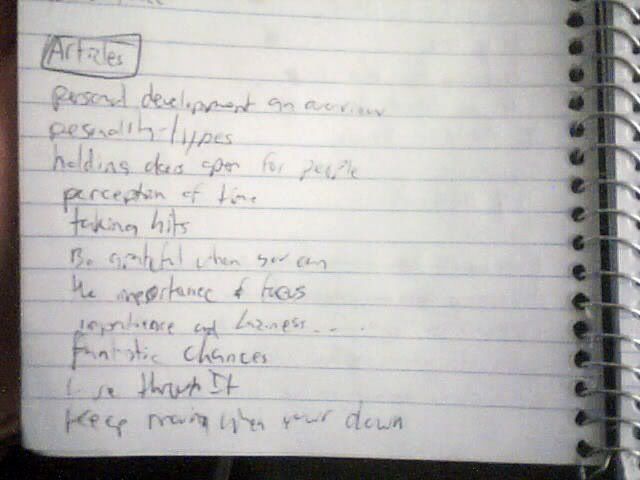 Articles
personal development an overview
pesonality types
holding doors open for people
perception of time
taking hits
Be grateful when you can
the importance of focus
and laziness....
fantastic chances
through It
keep moving when your down